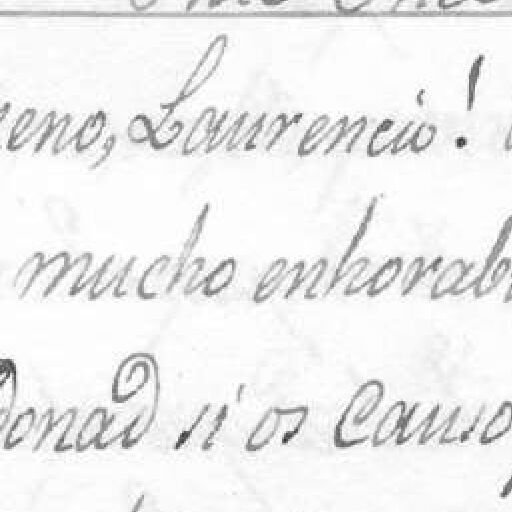 eno, Laurencio!
mucho enhorab
donad si os Causa